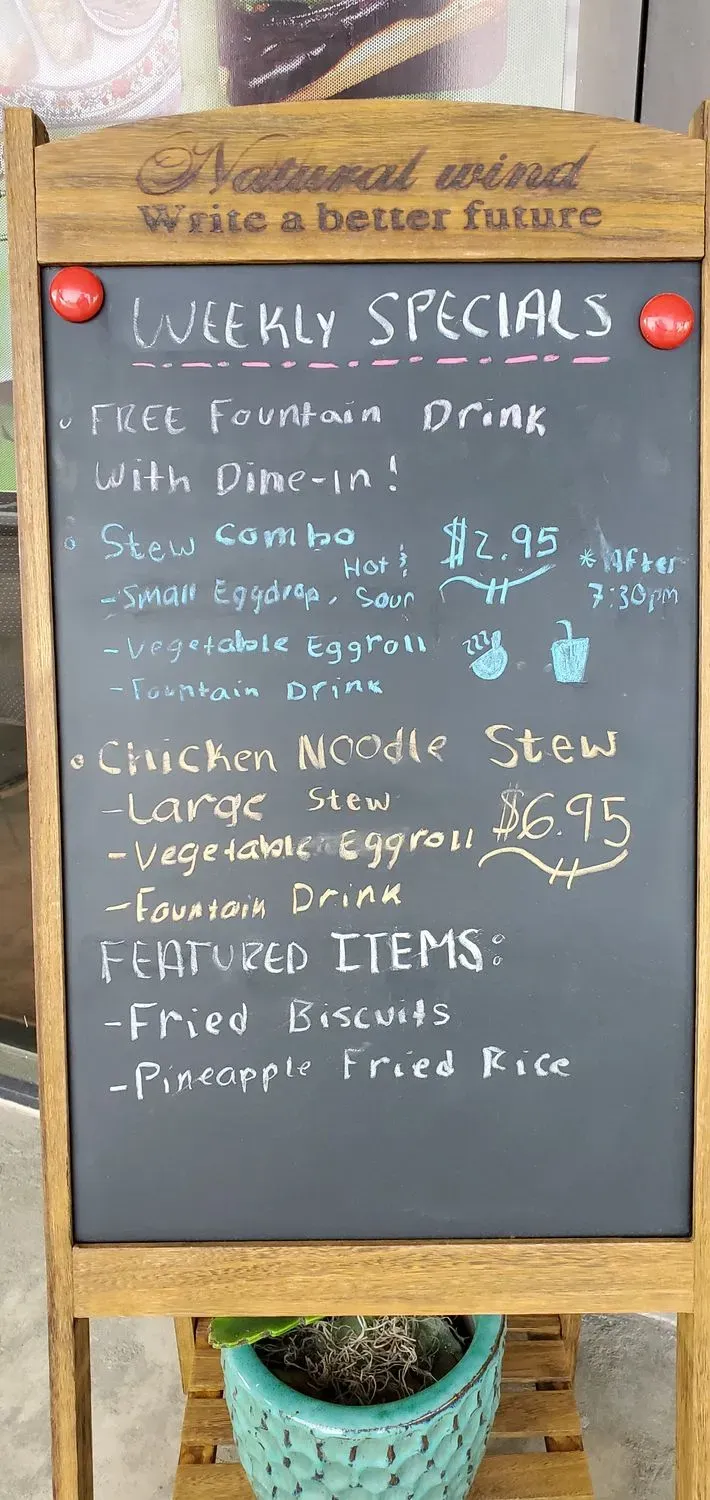 Natural wind
Write a better future
WEEKLY SPECIALS
FREE Fountain Drink
With Dine-in!
Stew Combo $2.95 *After 7:30pm
-Small Eggdrop, Hot & Sour
-Vegetable Eggroll
-Fountain Drink
Chicken Noodle Stew
-Large Stew $6.95
-Vegetable Eggroll
-Fountain Drink
FEATURED ITEMS:
-Fried Biscuits
-Pineapple Fried Rice